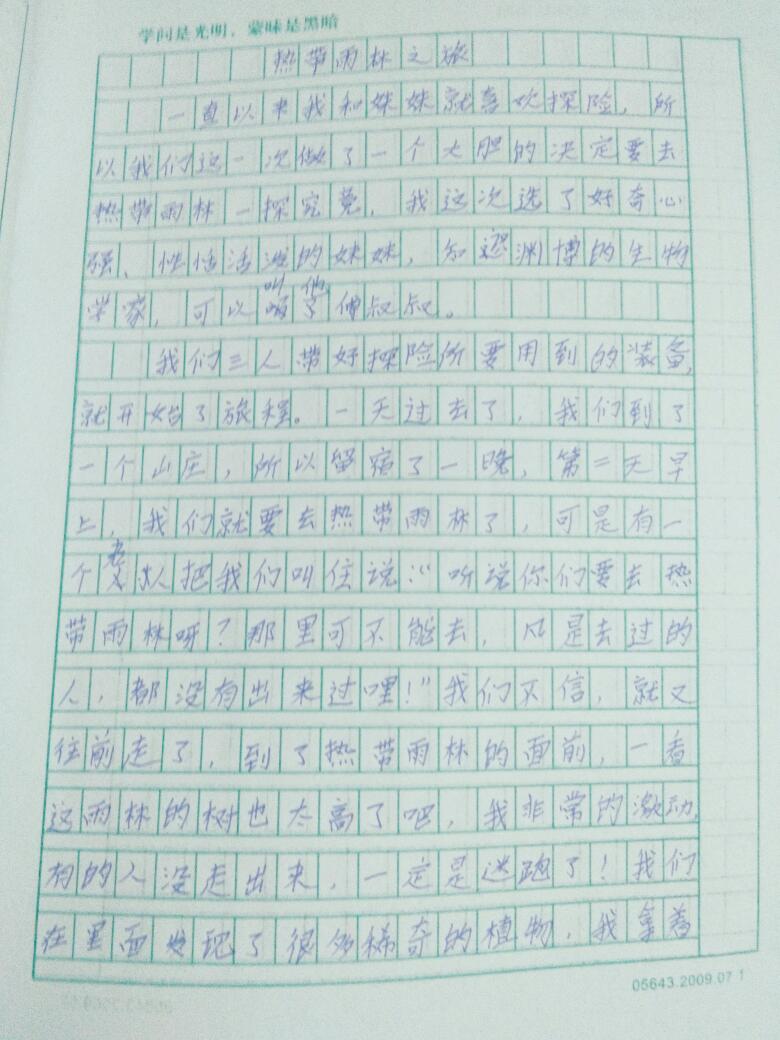 学问是光明，蒙昧是黑暗
热带雨林之旅
一直以来我和妹妹就喜欢探险，所
以我们这一次做了一个大胆的决定要去
热带雨林一探究竟，我这次选了好奇心
强、性恬活泼的妹妹，知识渊博的生物
叫他
学家，可以 了伸叔叔。
我们三人带好探险所要用到的装备，
就开始了旅程。一天过去了，我们到了
一个山庄，所以留宿了一晚，第二天早
上，我们就要去热带雨林了，可是有一
老
个 人把我们叫住说：“听说你们要去热
带雨林呀？那里可不能去，凡是去过的
人，都没有出来过哩！”我们不信，就又
往前走了，到了热带雨林的面前，一看
这雨林的树也太高了吧，我非常的激动，
有的人没走出来，一定是迷跑了！我们
在里面发现了很多稀奇的植物，我拿着
05643.2009.07 1